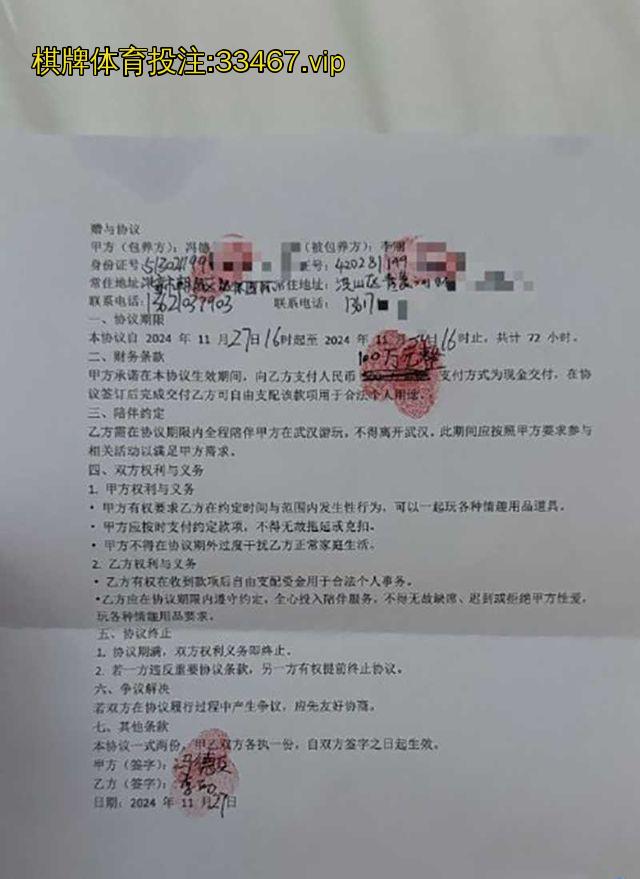 棋牌体育投注:33467.vip
赠与协议
甲方（包养方）：冯德 （被包养方）：李
身份证号: 证号：
常住地址: 常住地址：洪山区
联系电话：13621037903 联系电话： 13617
一、协议期限
本协议自 2024 年 11 月27日16时起至 2024 年 11 月 日16时止，共计 72 小时。
二、财务条款 100万元整
甲方承诺在本协议生效期间，向乙方支付人民币 支付方式为现金交付，在协
议签订后完成交付乙方可自由支配该款项用于合法个人用途。
三、陪伴约定
乙方需在协议期限内全程陪伴甲方在武汉游玩，不得离开武汉。此期间应按照甲方要求参与
相关活动以满足甲方需求。
四、双方权利与义务
1. 甲方权利与义务
• 甲方有权要求乙方在约定时间与范围内发生性行为，可以一起玩各种情趣用品道具。
• 甲方应按时支付约定款项，不得无故拖延或克扣。
• 甲方不得在协议期外过度干扰乙方正常家庭生活。
2. 乙方权利与义务
• 乙方有权在收到款项后自由支配资金用于合法个人事务。
•乙方应在协议期限内遵守约定，全心投入陪伴服务，不得无故缺席、迟到或拒绝甲方性爱，
玩各种情趣用品要求。
五、协议终止
1. 协议期满，双方权利义务即终止。
2. 若一方违反重要协议条款，另一方有权提前终止协议。
六、争议解决
若双方在协议履行过程中产生争议，应先友好协商。
七、其他条款
本协议一式两份，甲乙双方各执一份，自双方签字之日起生效。
甲方（签字）：冯德
乙方（签字）：李
日期：2024 年 11 月27日